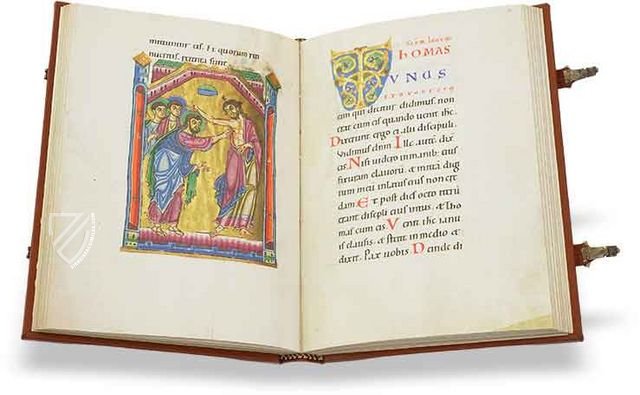 mittuntur eis. Et quorum re
nueritis. retenta sunt.
Scdm iohannem
THOMAS
UNUS
EXDUODECIM
cum qui dicitur didimus. non
erat cum eis quando uenit ihc.
Dixerunt ergo ei alii discipuli.
Vidimus dnm. Ille aute dix
eis. Nisi uidero in manib; eius
fixuram clauorũ. et mittã digi
tum meũ in latus eius non cre
dam. Et post dies octo iterũ
erant discipli eius intus. et tho
mas cum eis. Venit ihc ianu
is clausis. et stetit in medio et
dixit. Pax uobis. Deinde di